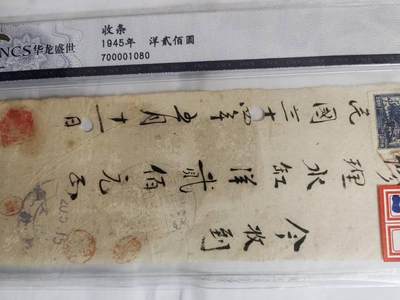 NCS华龙盛世
收条
1945年 洋貳佰圓
700001080
今收到
理水缸洋貳佰元正
民國三十四年五月十一日